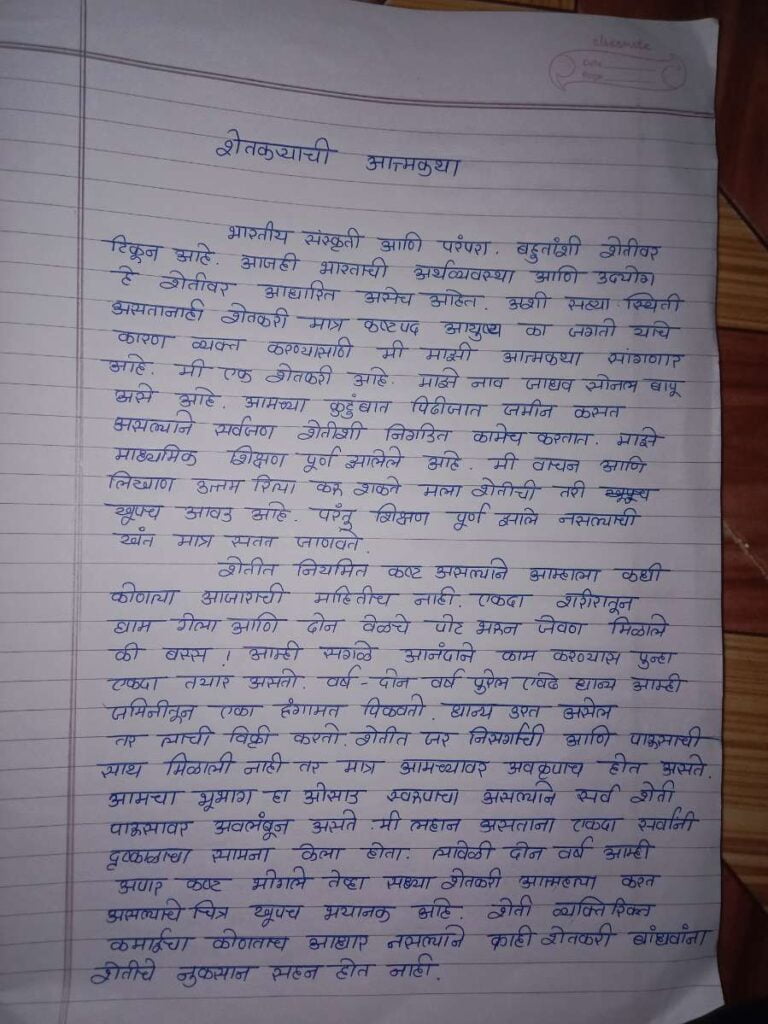 classmate
Date
Page
शेतकऱ्याची आत्मकथा
भारतीय संस्कृती आणि परंपरा. बहुतांशी शेतीवर
टिकून आहे. आजही भारताची अर्थव्यवस्था आणि उदयोग
हे शेतीवर आधारित असेच आहेत. अशी सध्या स्थिती
असतानाही शेतकरी मात्र कष्टपद आयुष्य का जगतो याचे
कारण व्यक्त करण्यासाठी मी माझी आत्मकथा सांगणार
आहे. मी एक शेतकरी आहे. माझे नाव जाधव सोनल बापू
असे आहे. आमच्या कुटुंबात पिढीजात जमीन कसत
असल्याने सर्वजण शेतीशी निगडित कामेच करतात. माझे
माध्यमिक शिक्षण पूर्ण झालेले आहे. मी वाचन आणि
लिखाण उत्तम रित्या करू शकते मला शेतीची तरी
खूपच आवड आहे. परंतु शिक्षण पूर्ण झाले नसल्याची
खंत मात्र सतत जाणवते.
शेतीत नियमित कष्ट असल्याने आम्हाला कधी
कोणत्या आजाराची माहितीच नाही. एकदा शरीरातून
घाम गेला आणि दोन वेळचे पोट भरून जेवण मिळाले
की बस्स ! आम्ही सगळे आनंदाने काम करण्यास पुन्हा
एकदा तयार असतो. वर्ष - दोन वर्ष पुरेल एवढे धान्य आम्ही
जमिनीतून एका हंगामत पिकवतो. धान्य उरत असेल
तर त्याची विक्री करतो. शेतीत जर निसर्गाची आणि पाऊसाची
साथ मिळाली नाही तर मात्र आमच्यावर अवकृपाच होत असते.
आमचा भूभाग हा ओसाड स्वरूपाचा असल्याने सर्व शेती
पाऊसावर अवलंबून असते. मी लहान असताना एकदा सर्वांनी
दुष्काळाचा सामना केला होता. त्यावेळी दोन वर्ष आम्ही
अपार कष्ट भोगले तेव्हा सध्या शेतकरी आत्महत्या करत
असल्याचे चित्र खूपच भयानक आहे. शेती व्यक्तिरिक्त
कमाईचा कोणताच आधार नसल्याने काही शेतकरी बांधवांना
शेतीचे नुकसान सहन होत नाही.